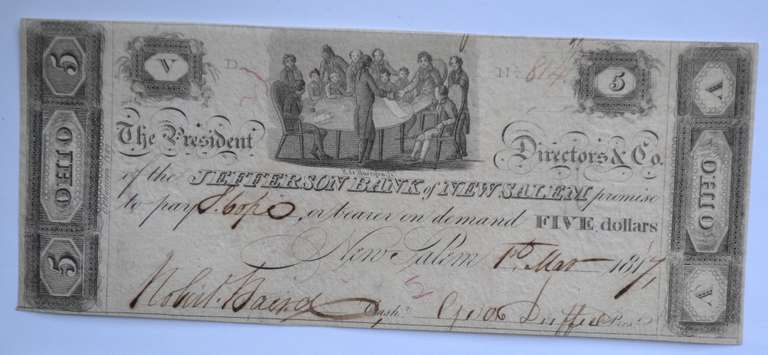 5 OHIO 5
V
D
Nº 814
5
V OHIO V
The President
Directors & Co.
of the JEFFERSON BANK of NEW SALEM promise
to pay or bearer on demand FIVE dollars
New Salem 1st Mar 1817,
Robert Baird Cash.r Geo Duffield Pres.t